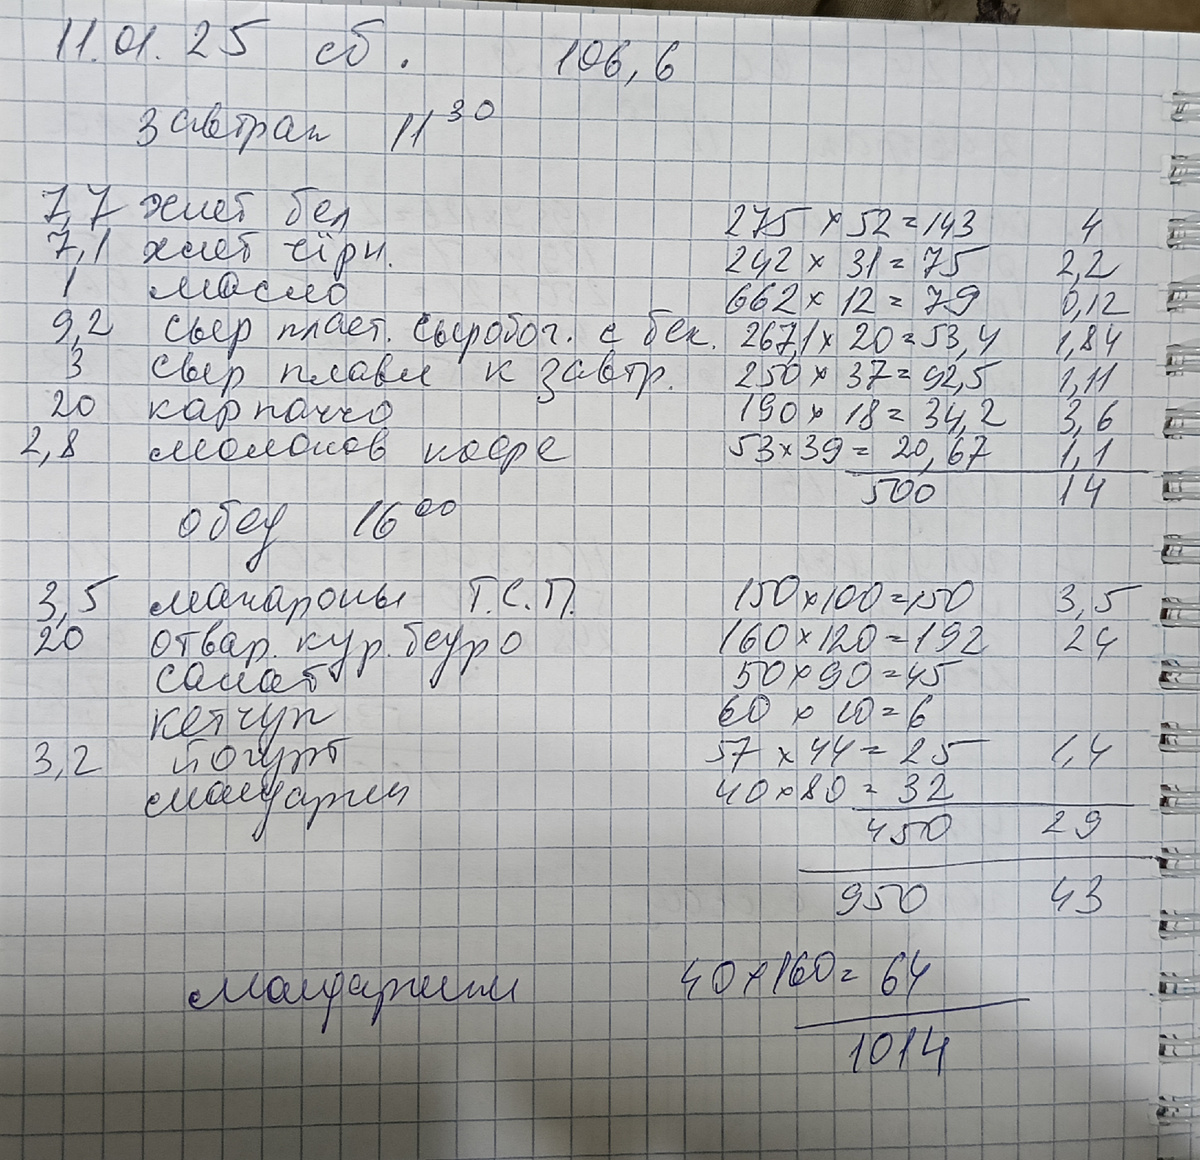 11.01.25 сб. 106,6
завтрак 11 30
7,7 хлеб бел 275 × 52 = 143 4
7,1 хлеб чёрн. 242 × 31 = 75 2,2
1 масло 662 × 12 = 79 0,12
9,2 сыр пласт. сыробог. с бек. 267,1 × 20 = 53,4 1,84
3 сыр плавл к завтр. 250 × 37 = 92,5 1,11
20 карпаччо 190 × 18 = 34,2 3,6
2,8 молоко в кофе 53 × 39 = 20,67 1,1
500 14
обед 16 00
3,5 макароны Т.С.П. 150 × 100 = 150 3,5
20 отвар. кур. бедро 160 × 120 = 192 24
салат 50 × 90 = 45
кетчуп 60 × 10 = 6
3,2 йогурт 57 × 44 = 25 1,4
мандарин 40 × 80 = 32
450 29
950 43
мандарины 40 × 160 = 64
1014